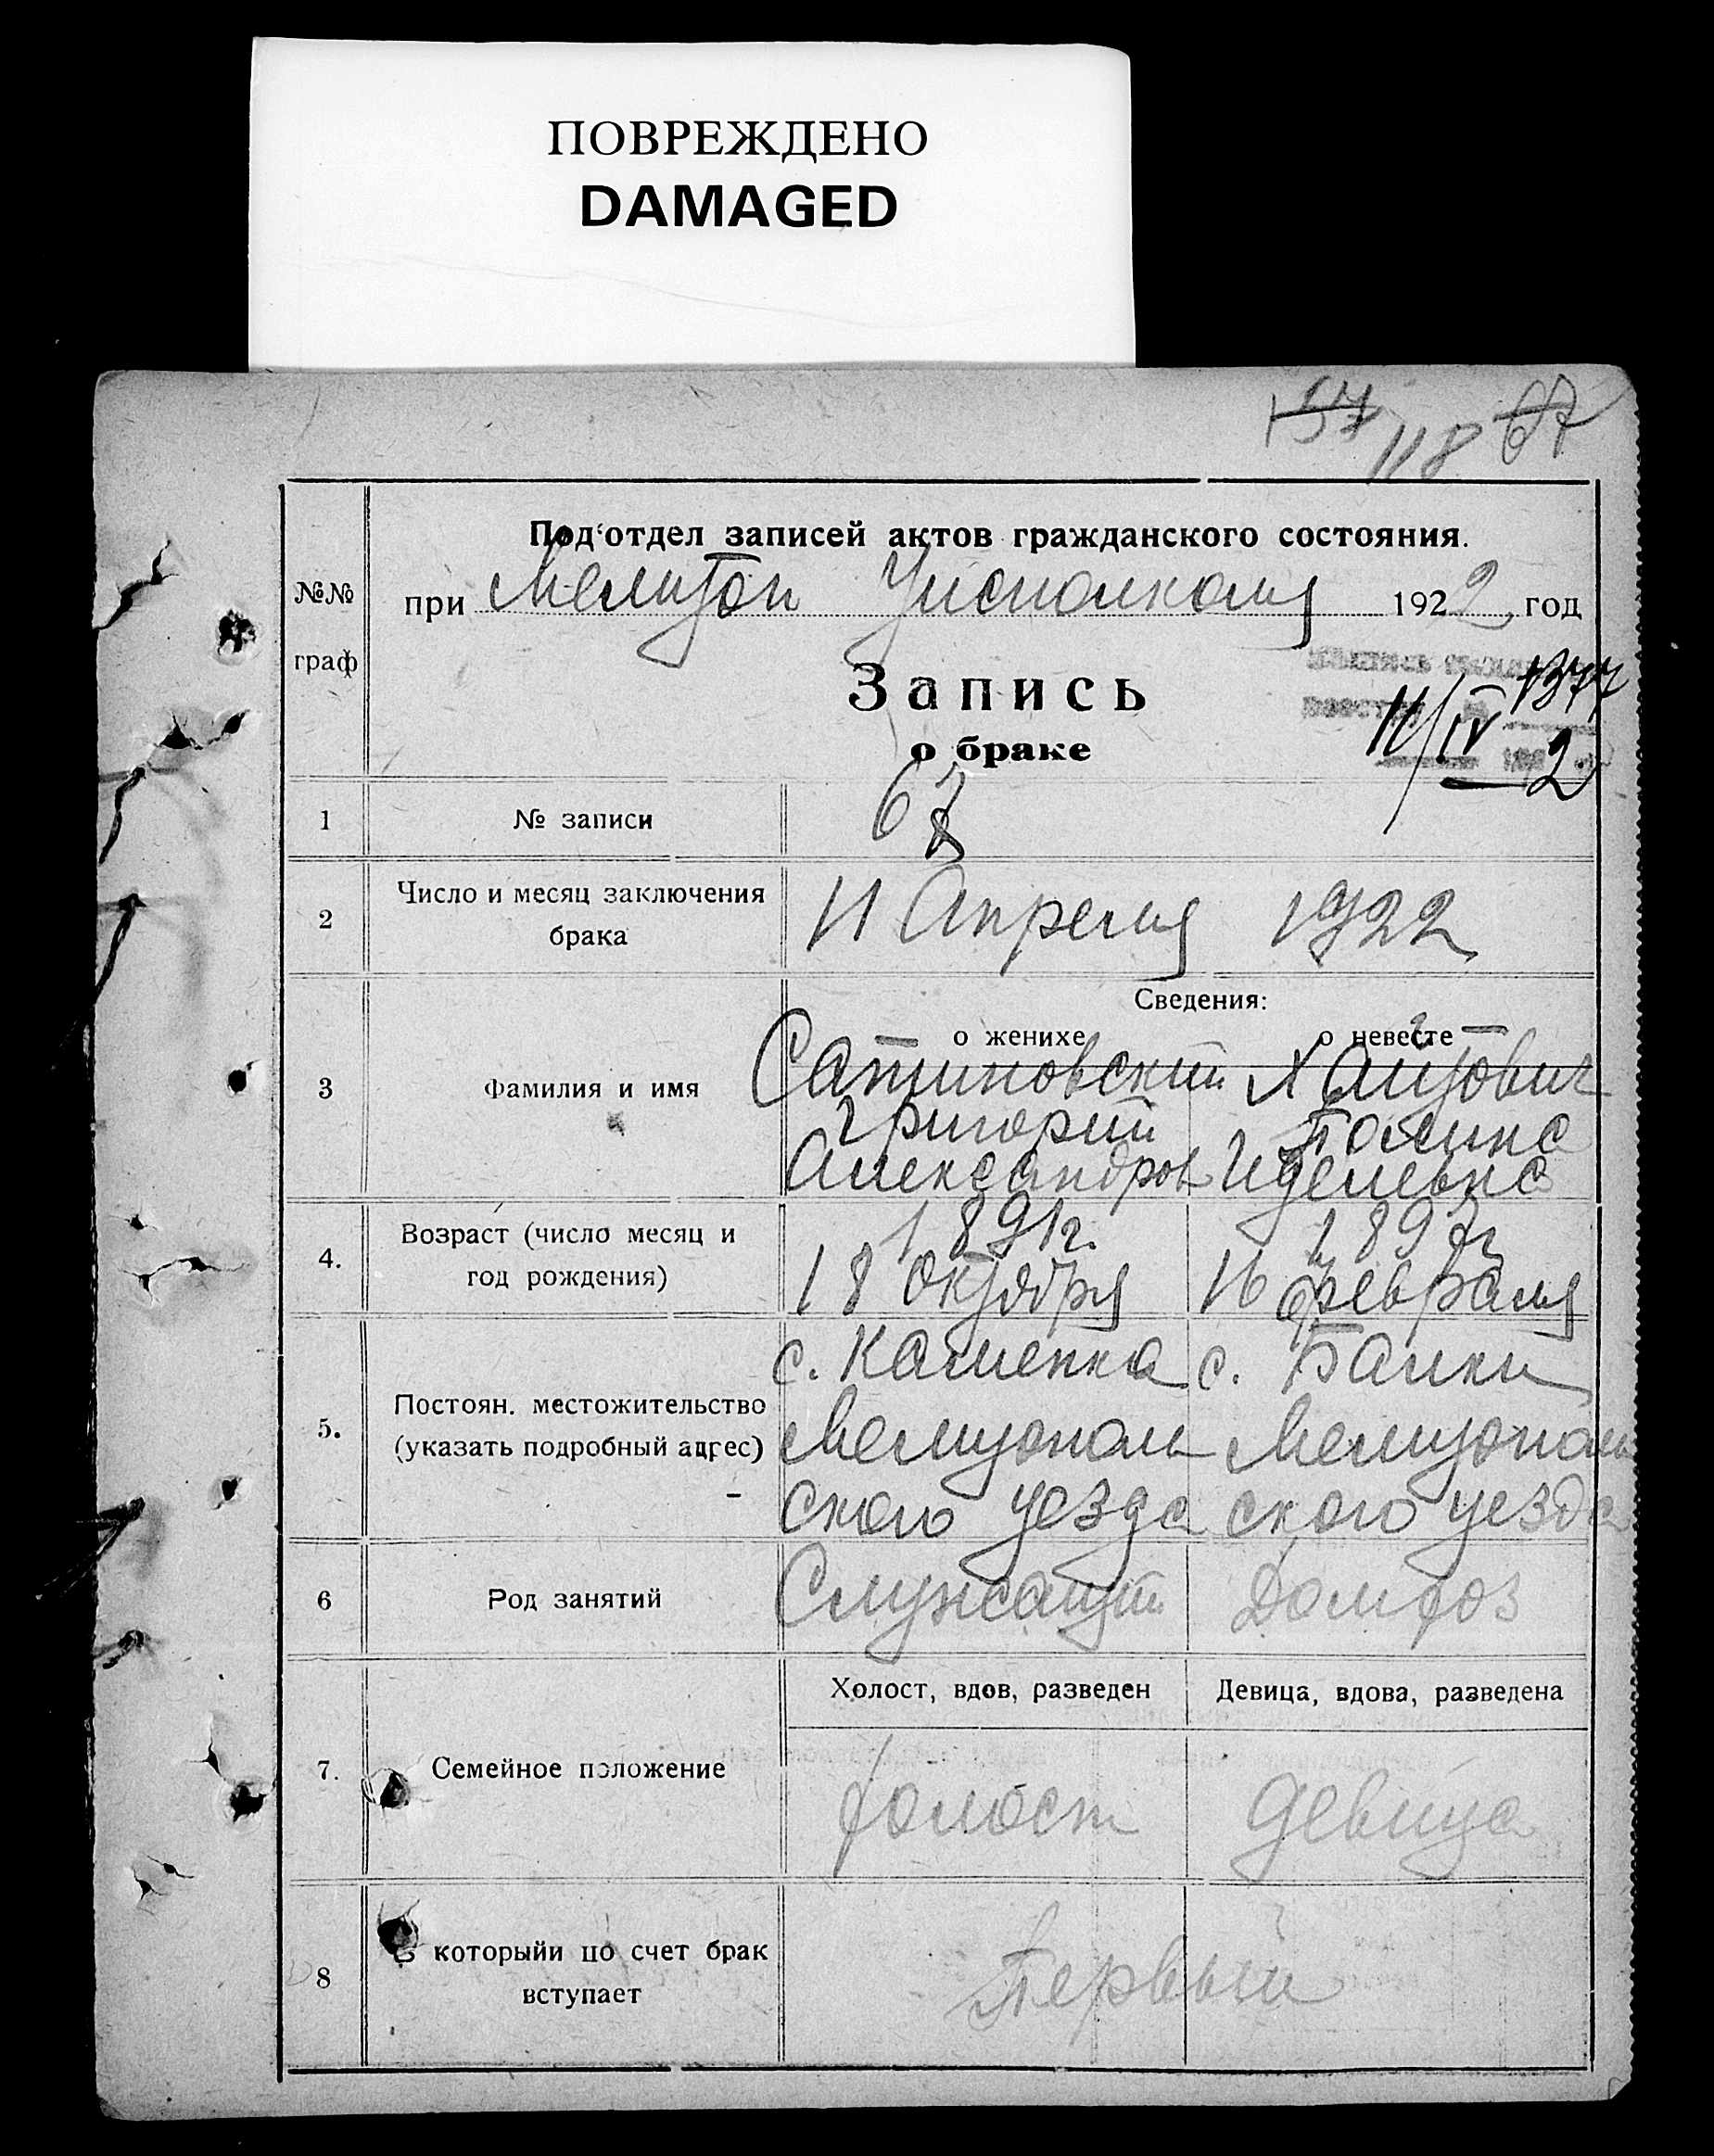 ПОВРЕЖДЕНО
DAMAGED
157 118 67
Под'отдел записей актов гражданского состояния.
№№ граф
при Мелитоп Уисполкома 1922 год
Запись
о браке
1377
11/IV 2
1 № записи 67
2 Число и месяц заключения брака 11 Апреля 1922
Сведения:
о женихе о невесте
3 Фамилия и имя
Сатановский
Григорий
Александров
Хаитович
Полина
Иделевна
4. Возраст (число месяц и год рождения)
1891г.
18 октября
1897г
16 февраля
5. Постоян. местожительство (указать подробный адрес)
с. Каменка
Мелитополь
ского уезда
с. Балки
Мелитополь
ского уезда
6 Род занятий Служащий Домхоз
Холост, вдов, разведен Девица, вдова, разведена
7. Семейное положение холост девица
8 В которыйи по счет брак вступает Первый